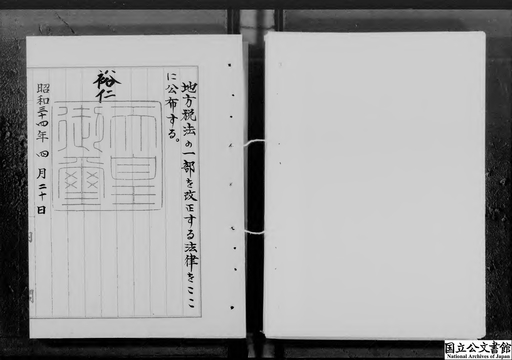 地方税法の一部を改正する法律をここ
に公布する。
裕仁
天皇
御璽
昭和三十四年四月二十日
国立公文書館
National Archives of Japan